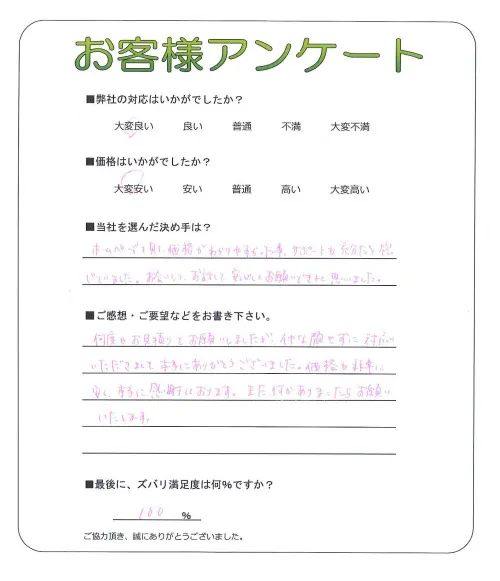 お客様アンケート
■弊社の対応はいかがでしたか？
大変良い 良い 普通 不満 大変不満
■価格はいかがでしたか？
大変安い 安い 普通 高い 大変高い
■当社を選んだ決め手は？
ホームページを見て価格がわかりやすかった事、サポートも充分だと感
じていました。お会いして、お話して、安心してお願いできると思いました。
■ご感想・ご要望などをお書き下さい。
何度もお見積りをお願いしましたが、イヤな顔せずに対応
いただきまして本当にありがとうございました。価格も非常に
安く、本当に感謝しております。また何かありましたらお願い
いたします。
■最後に、ズバリ満足度は何％ですか？
100 ％
ご協力頂き、誠にありがとうございました。